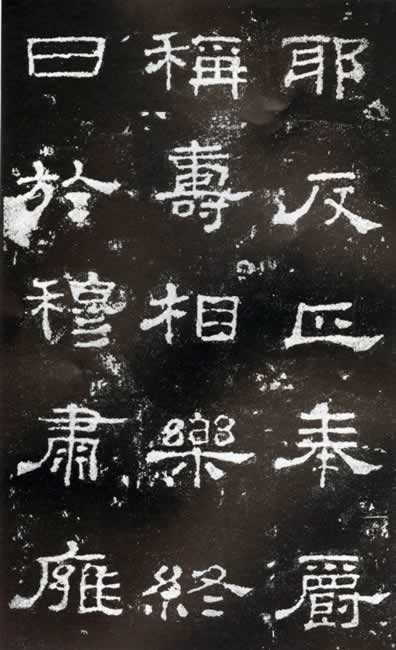 耶反正奉爵
稱壽相樂終
曰於穆肅雍